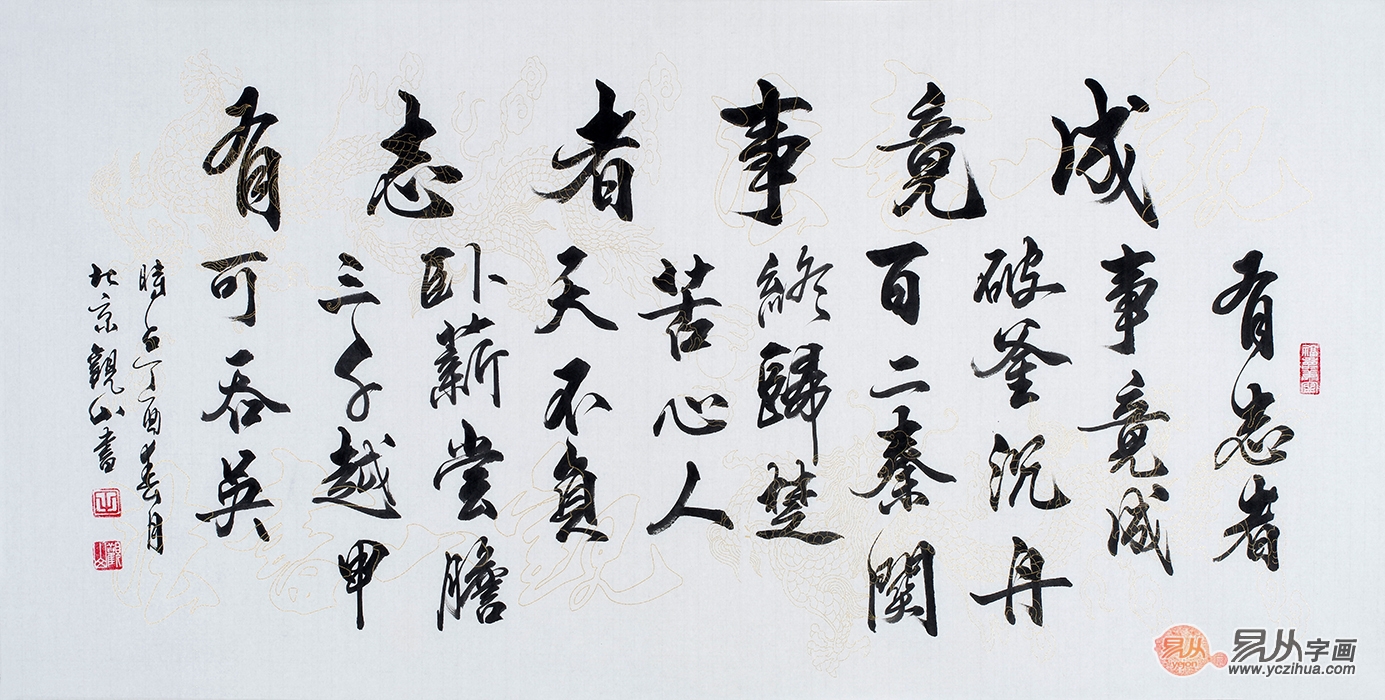 有志者事竟成
有志者
事竟成
破釜沉舟
百二秦關
終歸楚
苦心人
天不負
卧薪尝膽
三千越甲
可吞吳
時在丁酉春月
北京觀山書
觀山
易从
yigon
易从字画
www.yczihua.com